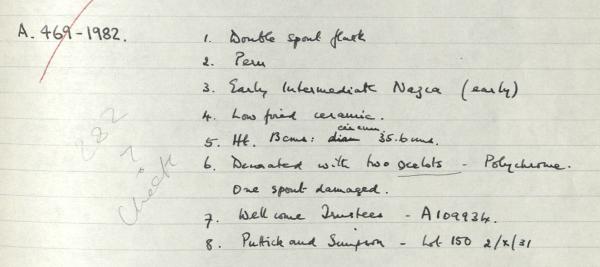 A. 469-1982.
1. Double spout flask
2. Peru
3. Early Intermediate Nazca (early)
4. Low fired ceramic.
5. Ht. 13cms: diam circum. 35.6cms.
6. Decorated with two ocelots - Polychrome.
One spout damaged.
7. Wellcome Trustees - A109934.
8. Puttick and Simpson - Lot 150 2/x/31
282
?
Check